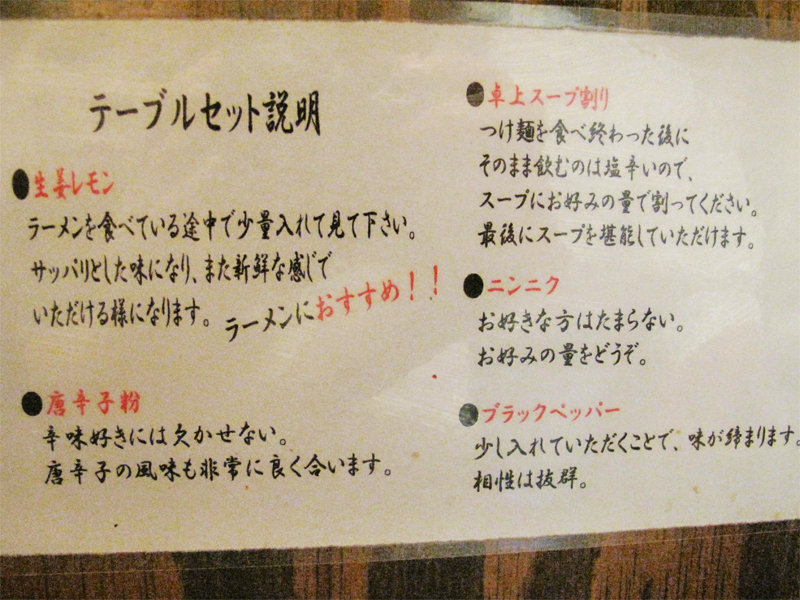 テーブルセット説明
●生姜レモン
ラーメンを食べている途中で少量入れて見て下さい。
サッパリとした味になり、また新鮮な感じで
いただける様になります。
ラーメンにおすすめ!!
●唐辛子粉
辛味好きには欠かせない。
唐辛子の風味も非常に良く合います。
●卓上スープ割り
つけ麺を食べ終わった後に
そのまま飲むのは塩辛いので、
スープにお好みの量で割ってください。
最後にスープを堪能していただけます。
●ニンニク
お好きな方はたまらない。
お好みの量をどうぞ。
●ブラックペッパー
少し入れていただくことで、味が締まります。
相性は抜群。